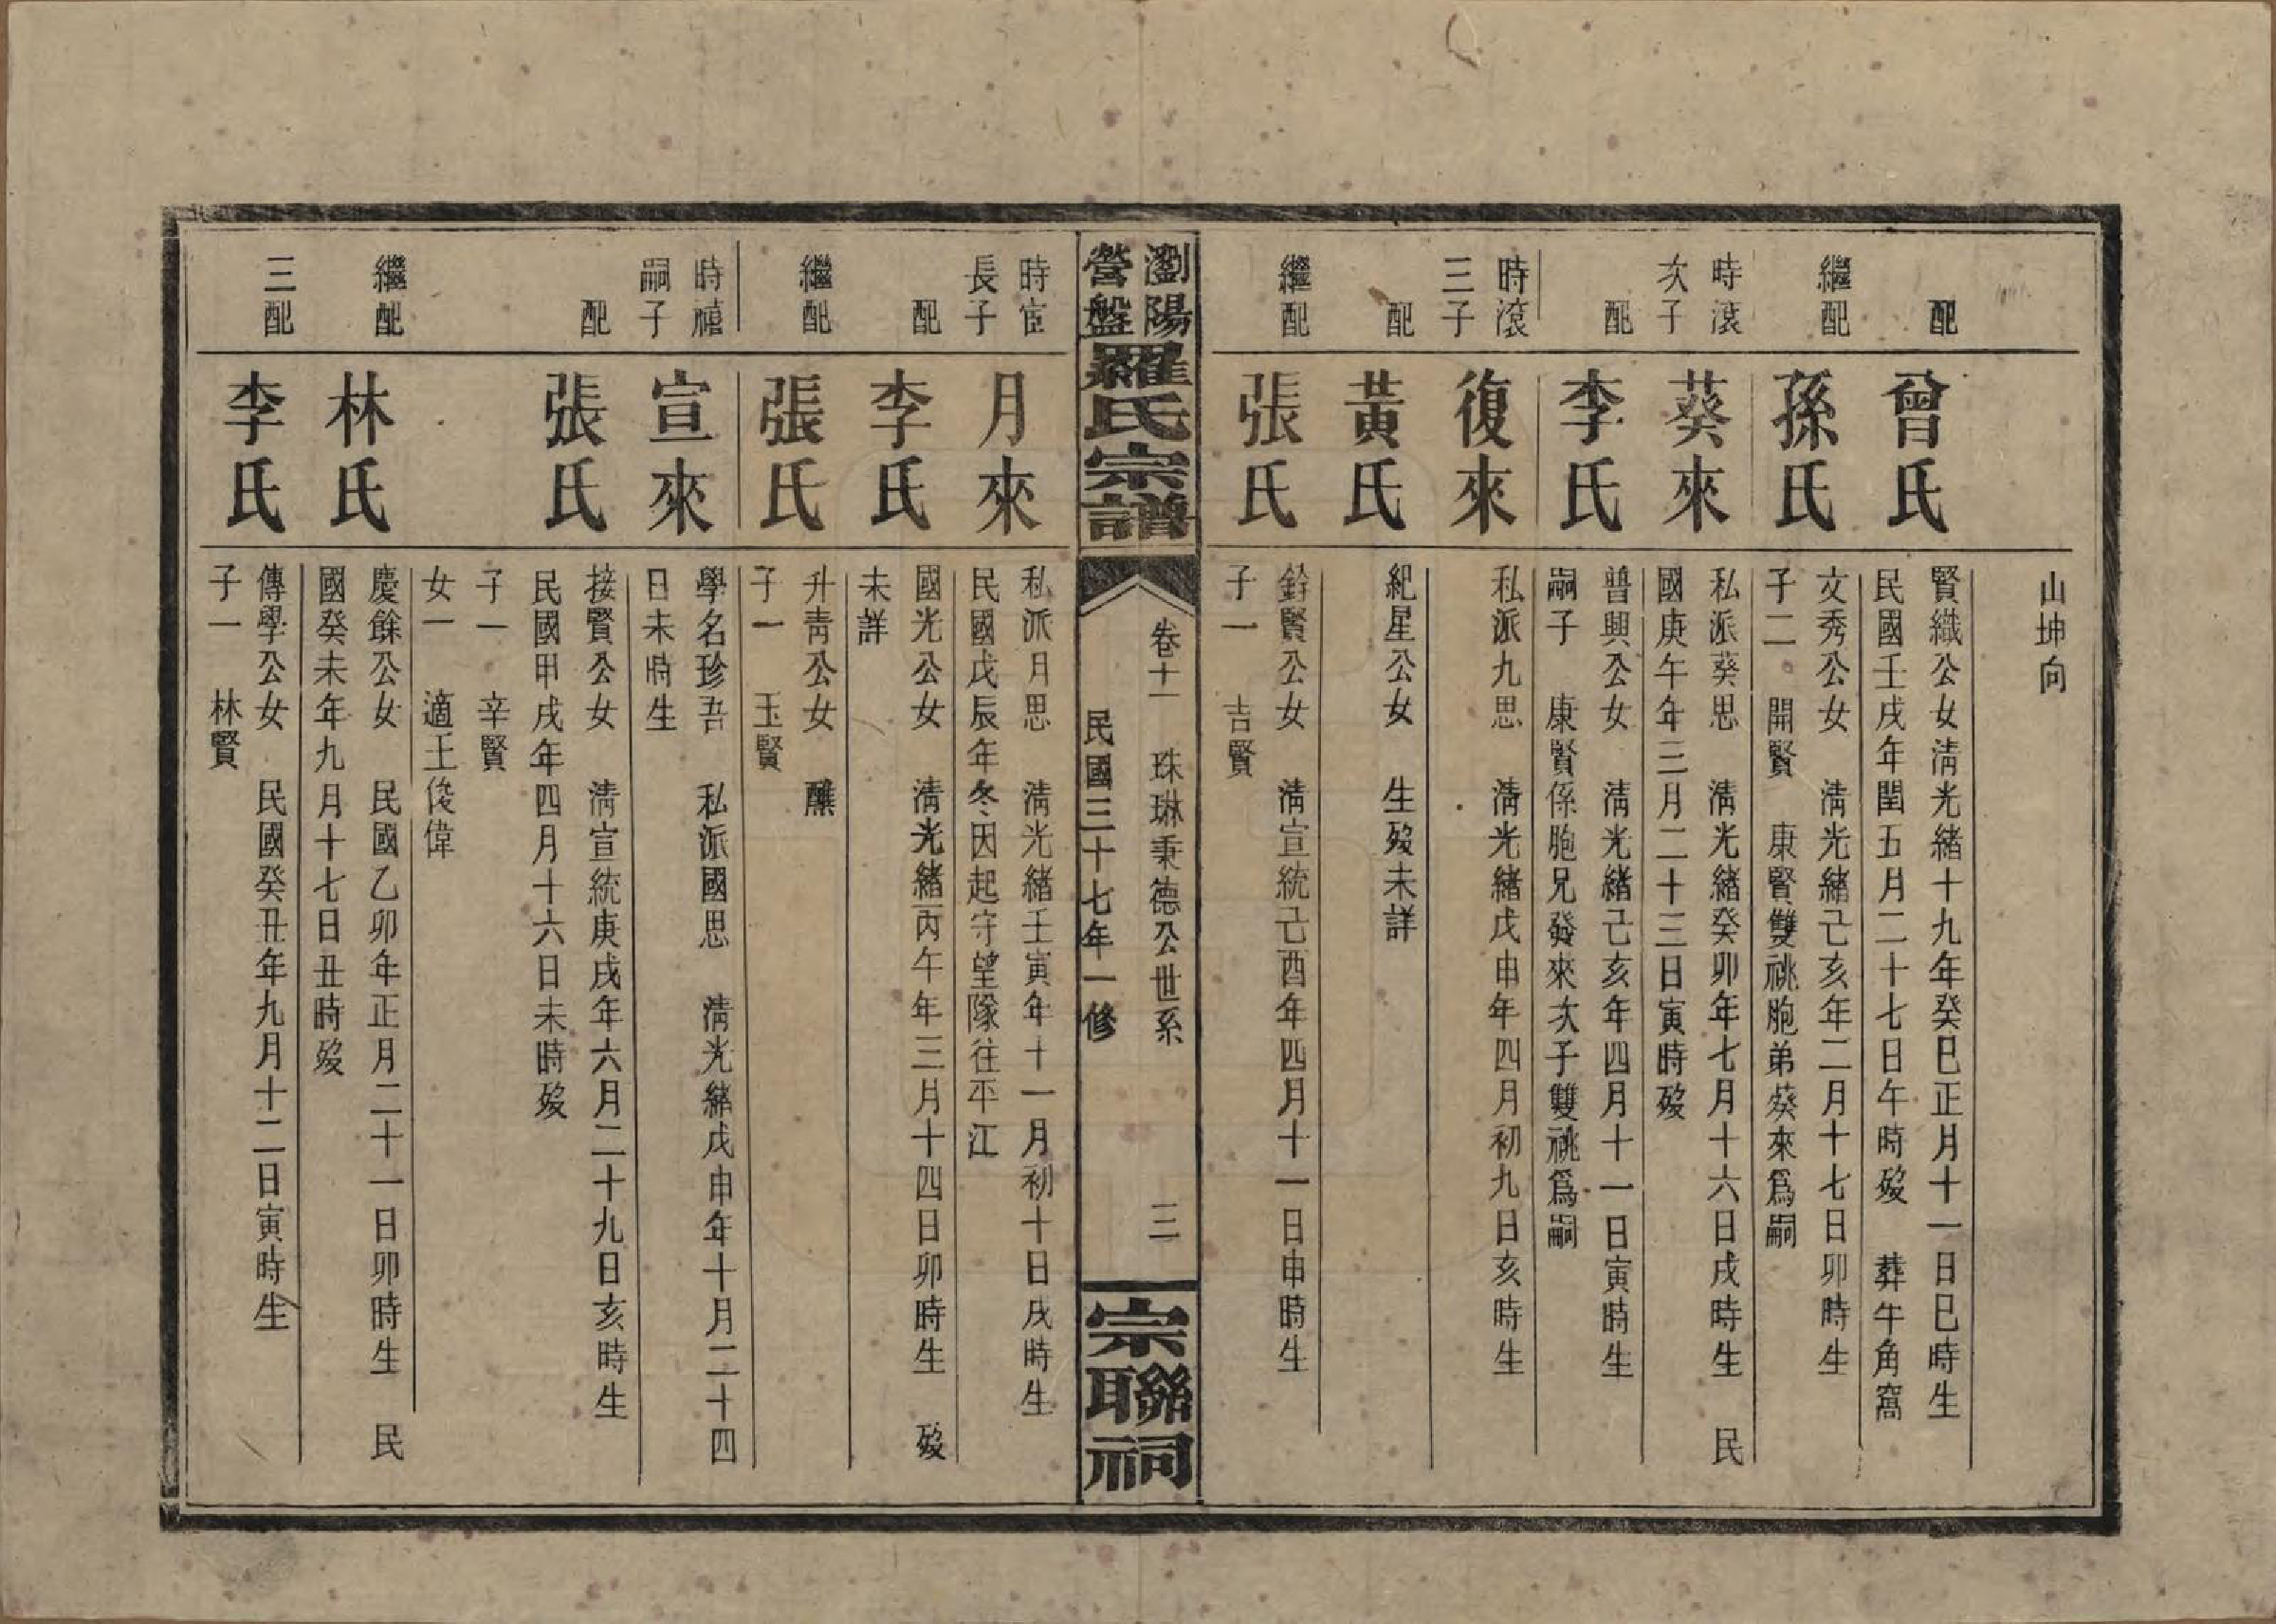 山坤向
配
曾氏
賢織公女清光緒十九年癸巳正月十一日巳時生
民國壬戌年閏五月二十七日午時歿　葬牛角窩
繼配
孫氏
文秀公女　清光緒己亥年二月十七日卯時生
子二　開賢　康賢雙祧胞弟葵來爲嗣
時滾
次子
葵來
私派葵思　清光緒癸卯年七月十六日戌時生　民
國庚午年三月二十三日寅時歿
配
李氏
普興公女　清光緒己亥年四月十一日寅時生
嗣子　康賢係胞兄發來次子雙祧爲嗣
時滾
三子
復來
私派九思　清光緒戊申年四月初九日亥時生
配
黃氏
紀星公女　生歿未詳
繼配
張氏
銓賢公女　清宣統己酉年四月十一日申時生
子一　吉賢
瀏陽
營盤
羅氏宗譜
卷十一　珠琳秉德公世系　三
民國三十七年一修
宗聯祠
時宦
長子
月來
私派月思　清光緒壬寅年十一月初十日戌時生
民國戊辰年冬因起守望隊往平江
配
李氏
國光公女　清光緒丙午年三月十四日卯時生　歿
未詳
繼配
張氏
升青公女　醮
子一　玉賢
時禧
嗣子
宣來
學名珍吾　私派國思　清光緒戊申年十月二十四
日未時生
配
張氏
接賢公女　清宣統庚戌年六月二十九日亥時生
民國甲戌年四月十六日未時歿
子一　辛賢
女一　適王俊偉
繼配
林氏
慶餘公女　民國乙卯年正月二十一日卯時生　民
國癸未年九月十七日丑時歿
三配
李氏
傳學公女　民國癸丑年九月十二日寅時生
子一　林賢